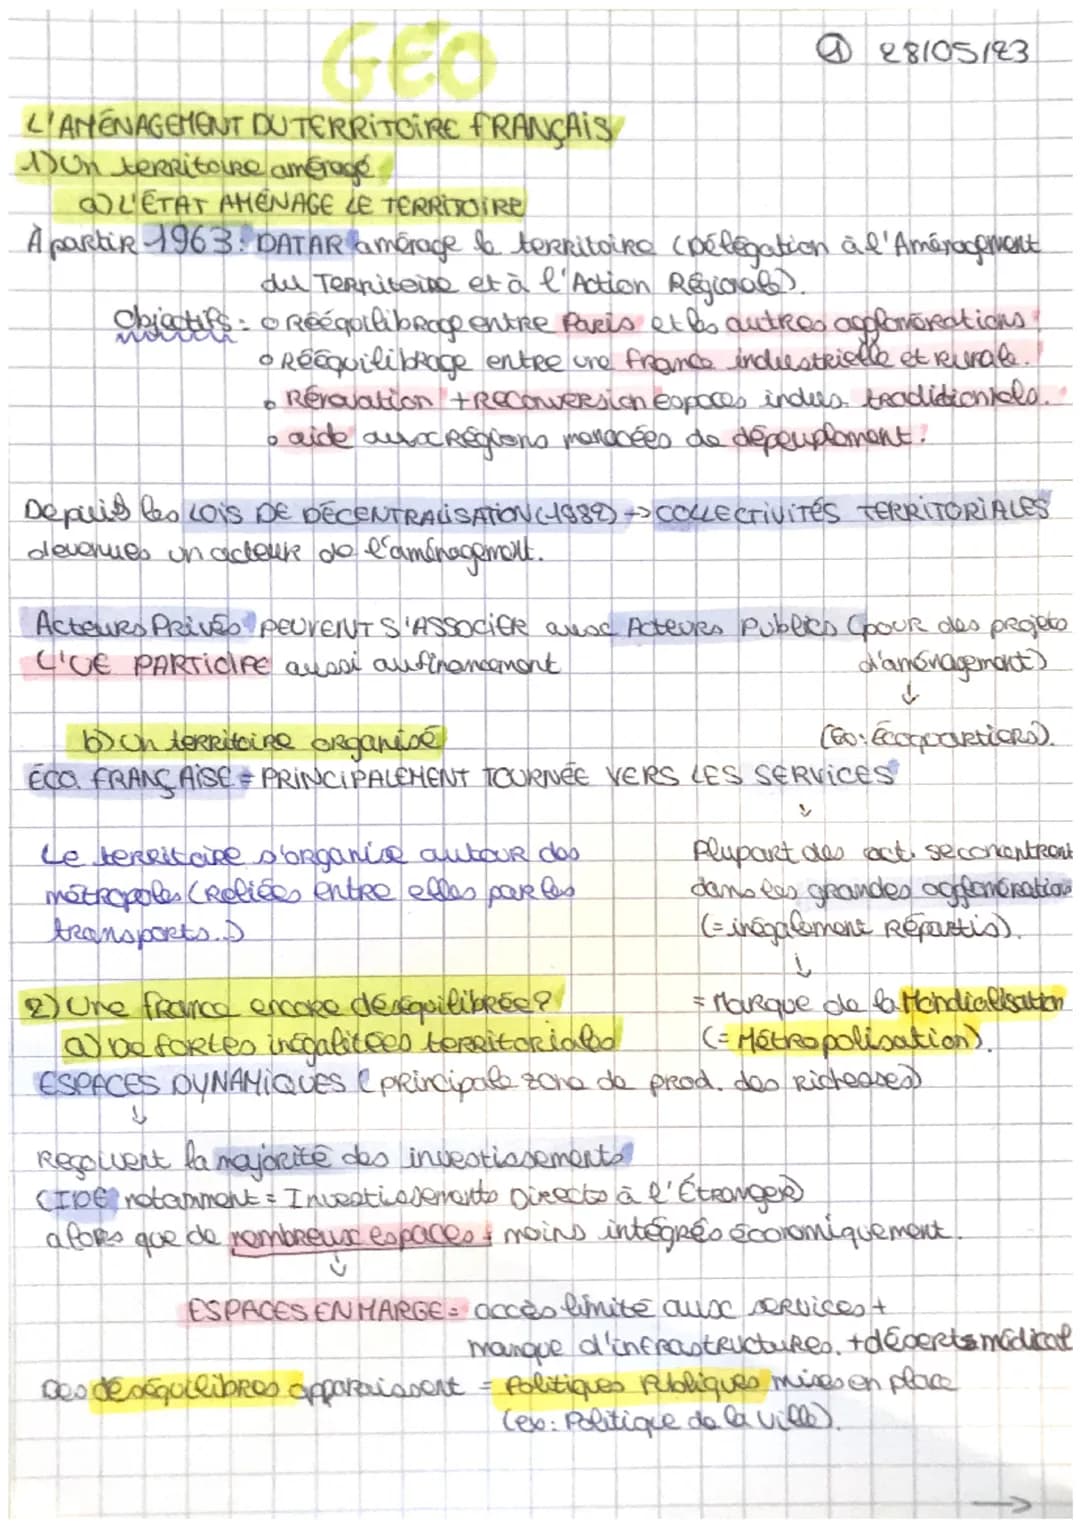 GÉO
① 28/05/23
L'AMÉNAGEMENT DU TERRITOIRE FRANÇAIS
1) Un territoire aménagé
a) L'ÉTAT AMÉNAGE LE TERRITOIRE
À partir 1963: DATAR aménage le territoire (Délégation à l'Aménagement
du Territoire et à l'Action Régionale).
Objectifs: o Rééquilibrage entre Paris et les autres agglomérations
o Rééquilibrage entre une france industrielle et rurale.
o Rénovation + reconversion espaces indus. traditionnels.
o aide aux régions menacées de dépeuplement.
Depuis les LOIS DE DÉCENTRALISATION (1982) → COLLECTIVITÉS TERRITORIALES
devenues un acteur de l'aménagement.
Acteurs Privés PEUVENT S'ASSOCIER aux Acteurs Publics (pour des projets
d'aménagement)
L'UE PARTICIPE aussi au financement
↓
(Ex: Écoquartiers).
b) Un territoire organisé
ÉCO. FRANÇAISE = PRINCIPALEMENT TOURNÉE VERS LES SERVICES
↓
Le territoire s'organise autour des
métropoles (reliées entre elles par les
transports..)
Plupart des act. se concentrent
dans les grandes agglomérations
(= inégalement répartis).
↓
= Marque de la Mondialisation
(= Métropolisation).
2) Une france encore déséquilibrée?
a) De fortes inégalitées territoriales
ESPACES DYNAMIQUES (principale zone de prod. des richesses)
↓
Reçoivent la majorité des investissements
(IDE notamment = Investissements Directs à l'Étranger)
alors que de nombreux espaces: moins intégrés économiquement.
↓
ESPACES EN MARGE = accès limité aux services +
manque d'infrastructures. + déserts médical
Des déséquilibres apparaissent = Politiques Publiques mises en place
(ex: Politique de la ville).
→